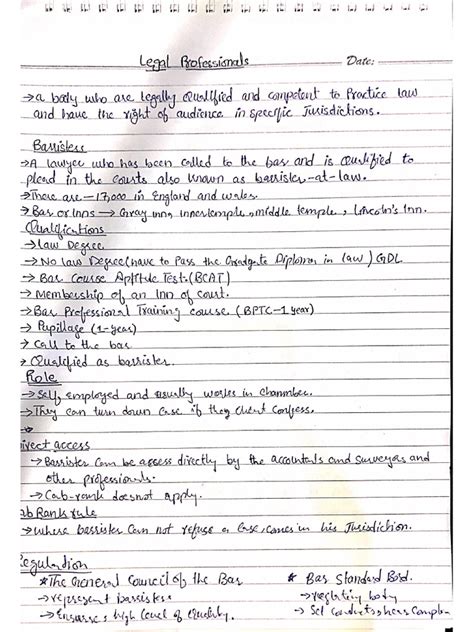 Legal Professionals
Date:
→a body who are legally Qualified and competent to Practice law
and have the right of audience in specific Jurisdictions.
Barristers
→A lawyer who has been called to the bar and is Qualified to
plead in the courts also known as barrister-at-law.
→There are ~17,000 in England and wales.
→Bar or Inns → Gray inn, innertemple, middle temple, Lincoln's Inn.
Qualifications
→law Degree
→No law Degree(have to Pass the Graduate Diploma in law) GDL
→Bar Course Aptitute Test.(BCAT)
→Membership of an Inn of court.
→Bar Professional Training course (BPTC-1 year)
→Pupillage (1-year)
→Call to the bar
→Qualified as barrister.
Role
→Self employed and usually works in chamber.
→They can turn down case if they client confess.
→
irect access
→Barrister can be access directly by the accountants and Surveyors and
other professionals.
→Cab-rank doesnot apply.
ab Rank rule
→where barrister can not refuse a case, comes in his Jurisdiction.
Regulation
*The General Council of the Bar
* Bar Standard Bord.
→represent barristers
→regulating body
→Ensures high level of Quality.
→ Set conducts, hears Complain